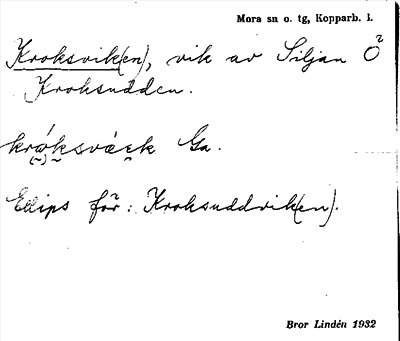 Mora sn o. tg, Kopparb. l.
Kroksvik(en), vik av Siljan Ö
Kroksudden.
krǻksvæk Ga.
Ellips för: Kroksuddvik(en).
Bror Lindén 1932